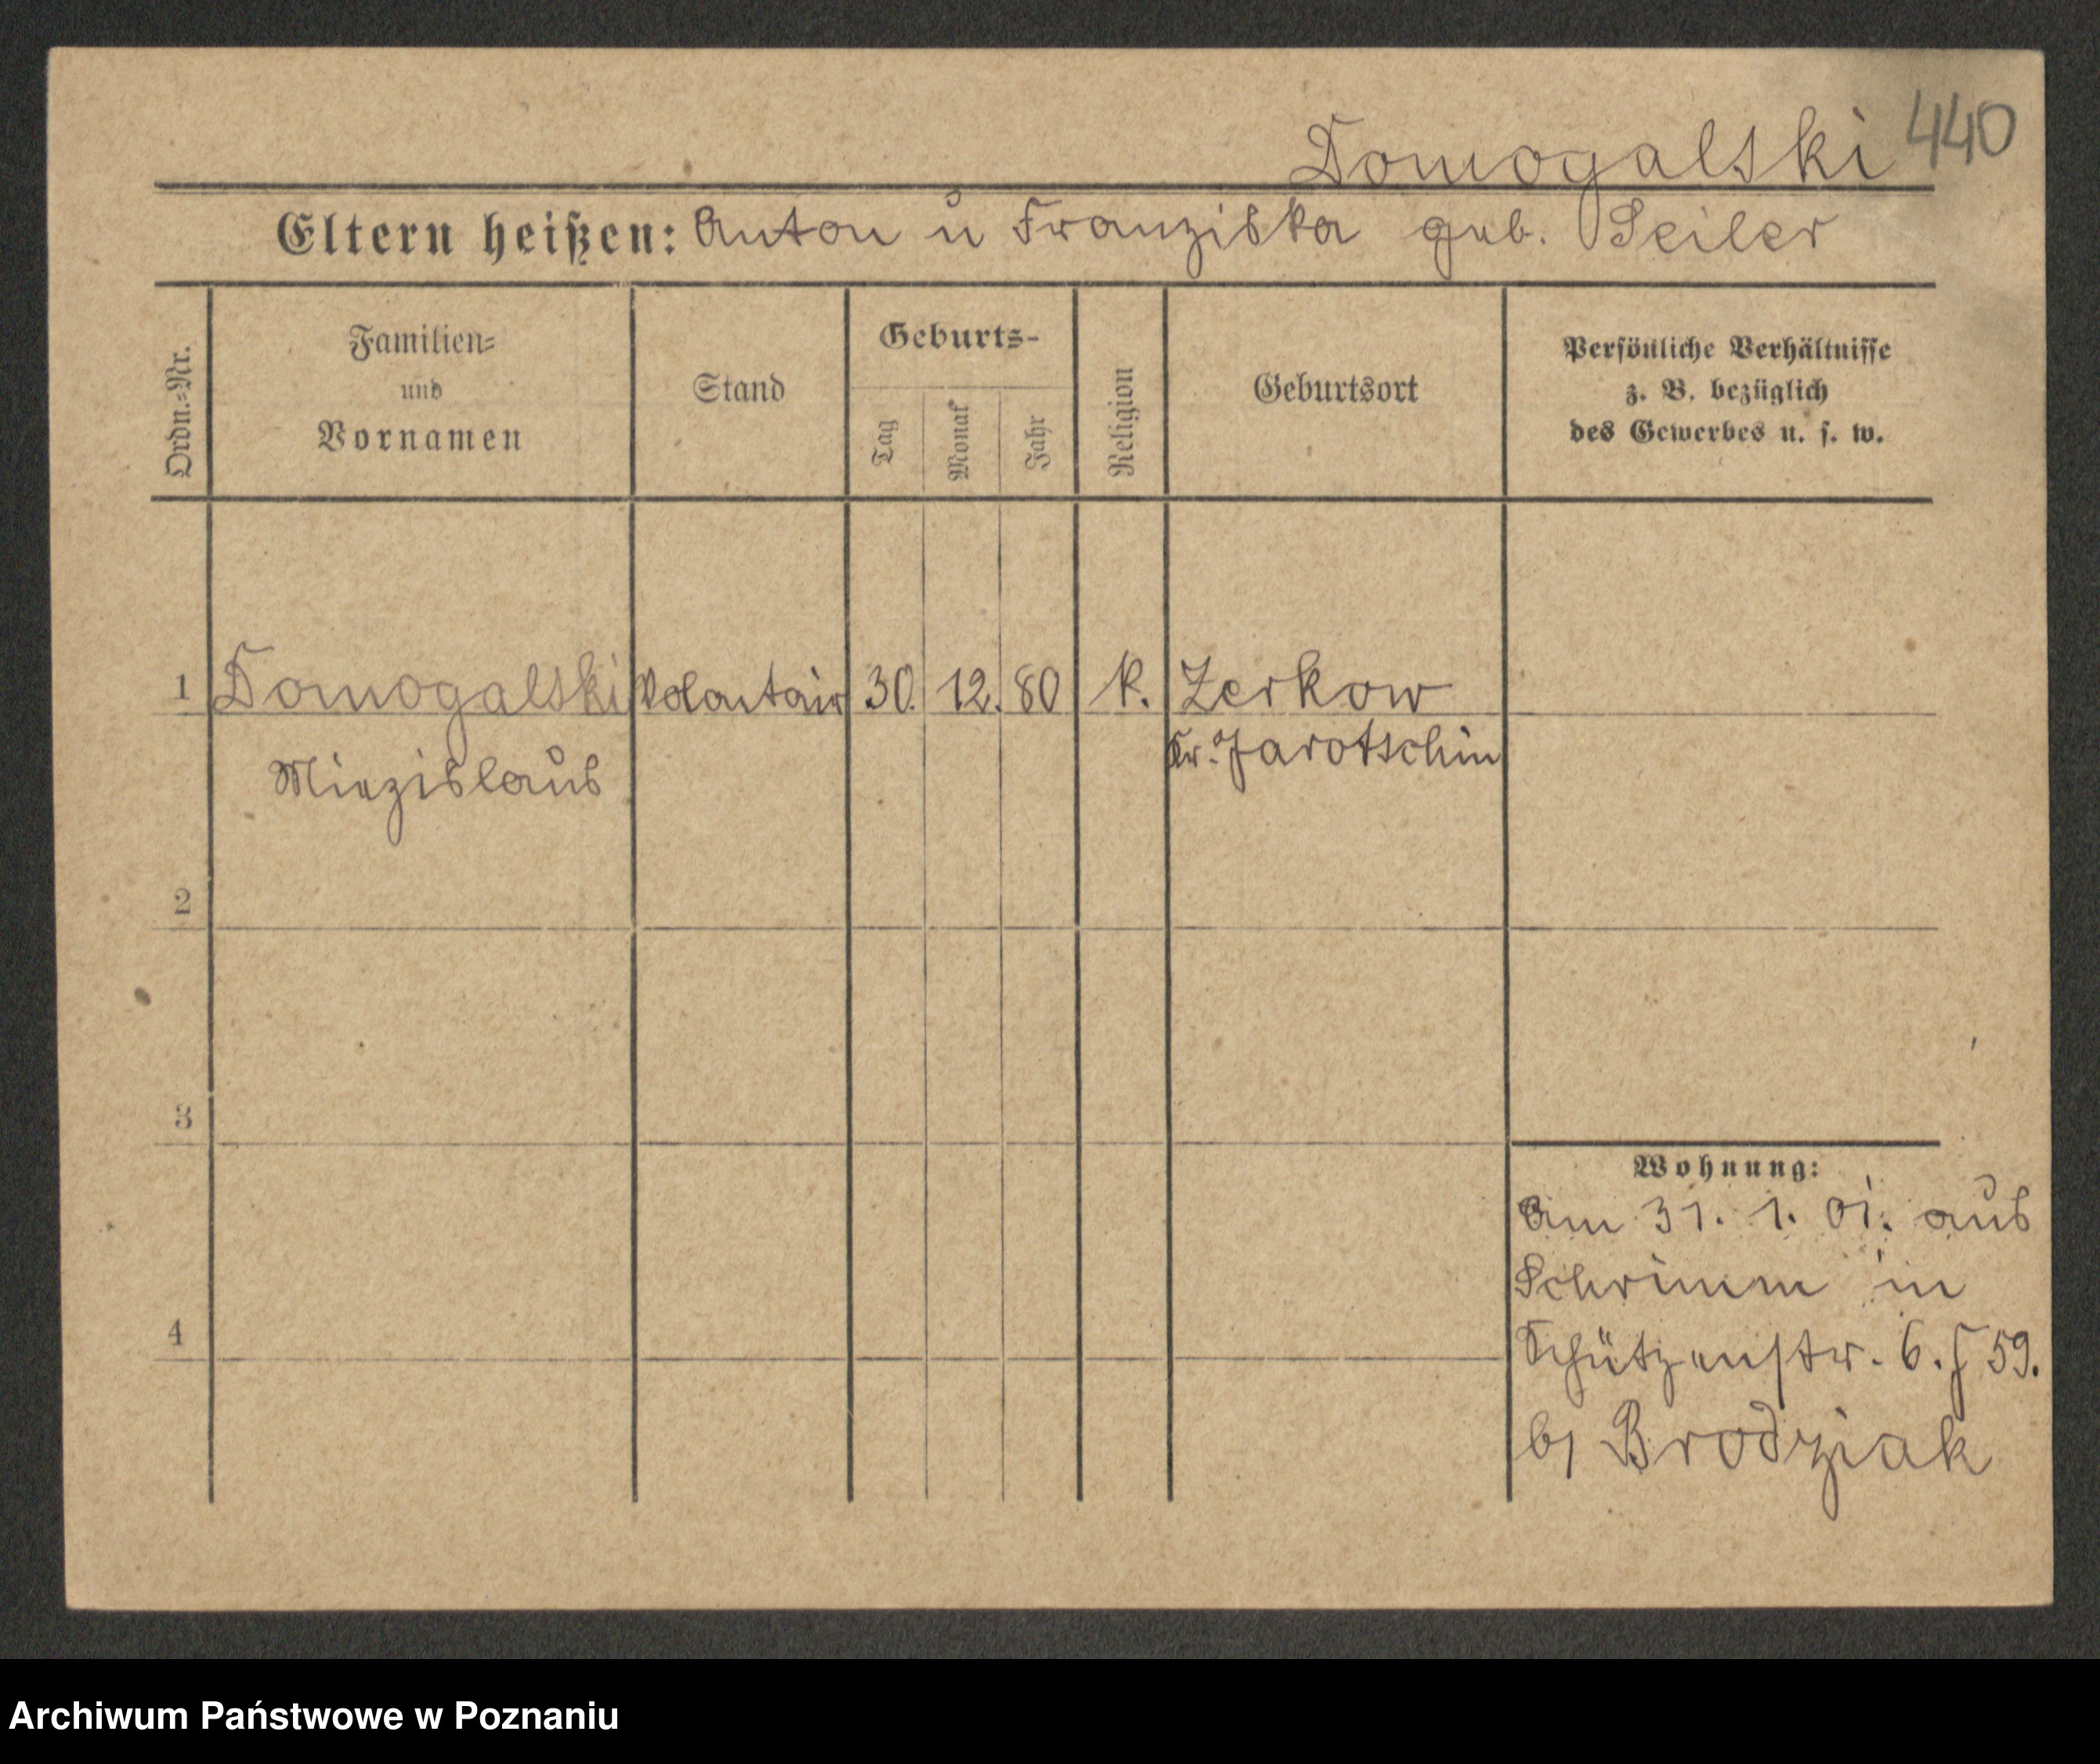 Domogalski 440
Eltern heißen: Anton u Franziska geb. Seiler
Ordn.=Nr.
Familien=
und
Vornamen
Stand
Geburts-
Tag
Monat
Jahr
Religion
Geburtsort
Persönliche Verhältnisse
z. B. bezüglich
des Gewerbes u. s. w.
1 Domogalski Volontair 30. 12. 80 k. Zerkow
Miezislaus Kr. Jarotschin
2
3
Wohnung:
Am 31. 1. 01. aus
Schrimm in
4
Schützenstr. 6. 59.
b/ Brodziak
Archiwum Państwowe w Poznaniu